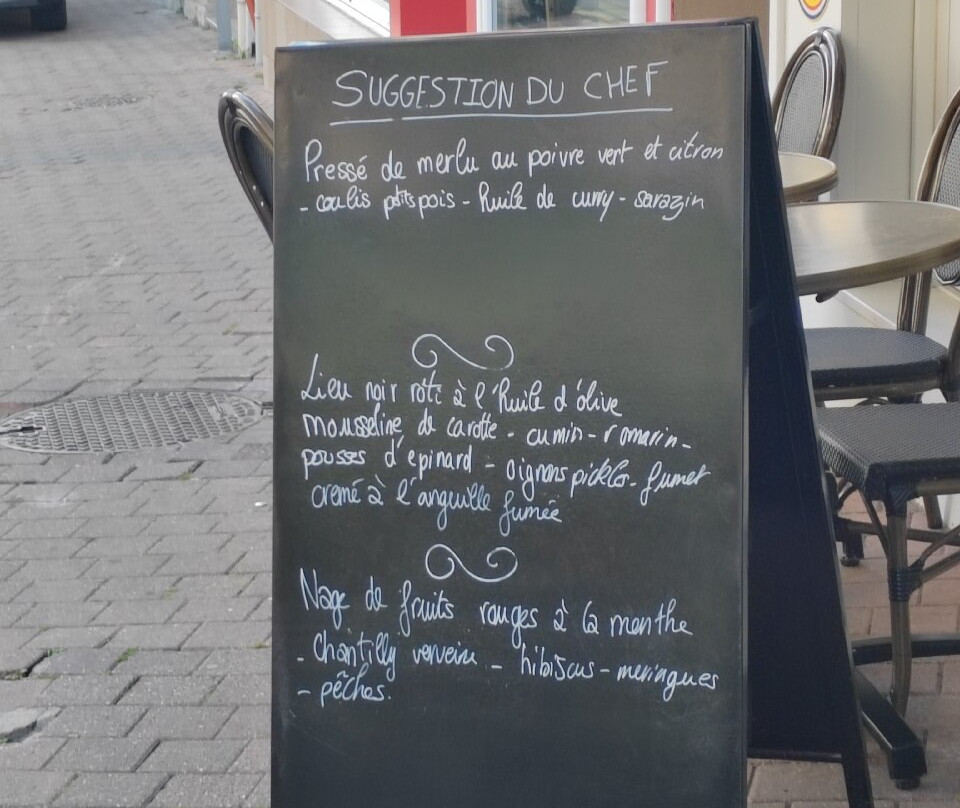 SUGGESTION DU CHEF
Pressé de merlu au poivre vert et citron
- coulis petits pois - huile de curry - sarazin
Lieu noir rôti à l'huile d'olive
mousseline de carotte - cumin - romarin -
pousses d'epinard - oignons pickles - fumet
cremé à l'anguille fumée
Nage de fruits rouges à la menthe
- chantilly verveine - hibiscus - meringues
- pêches.